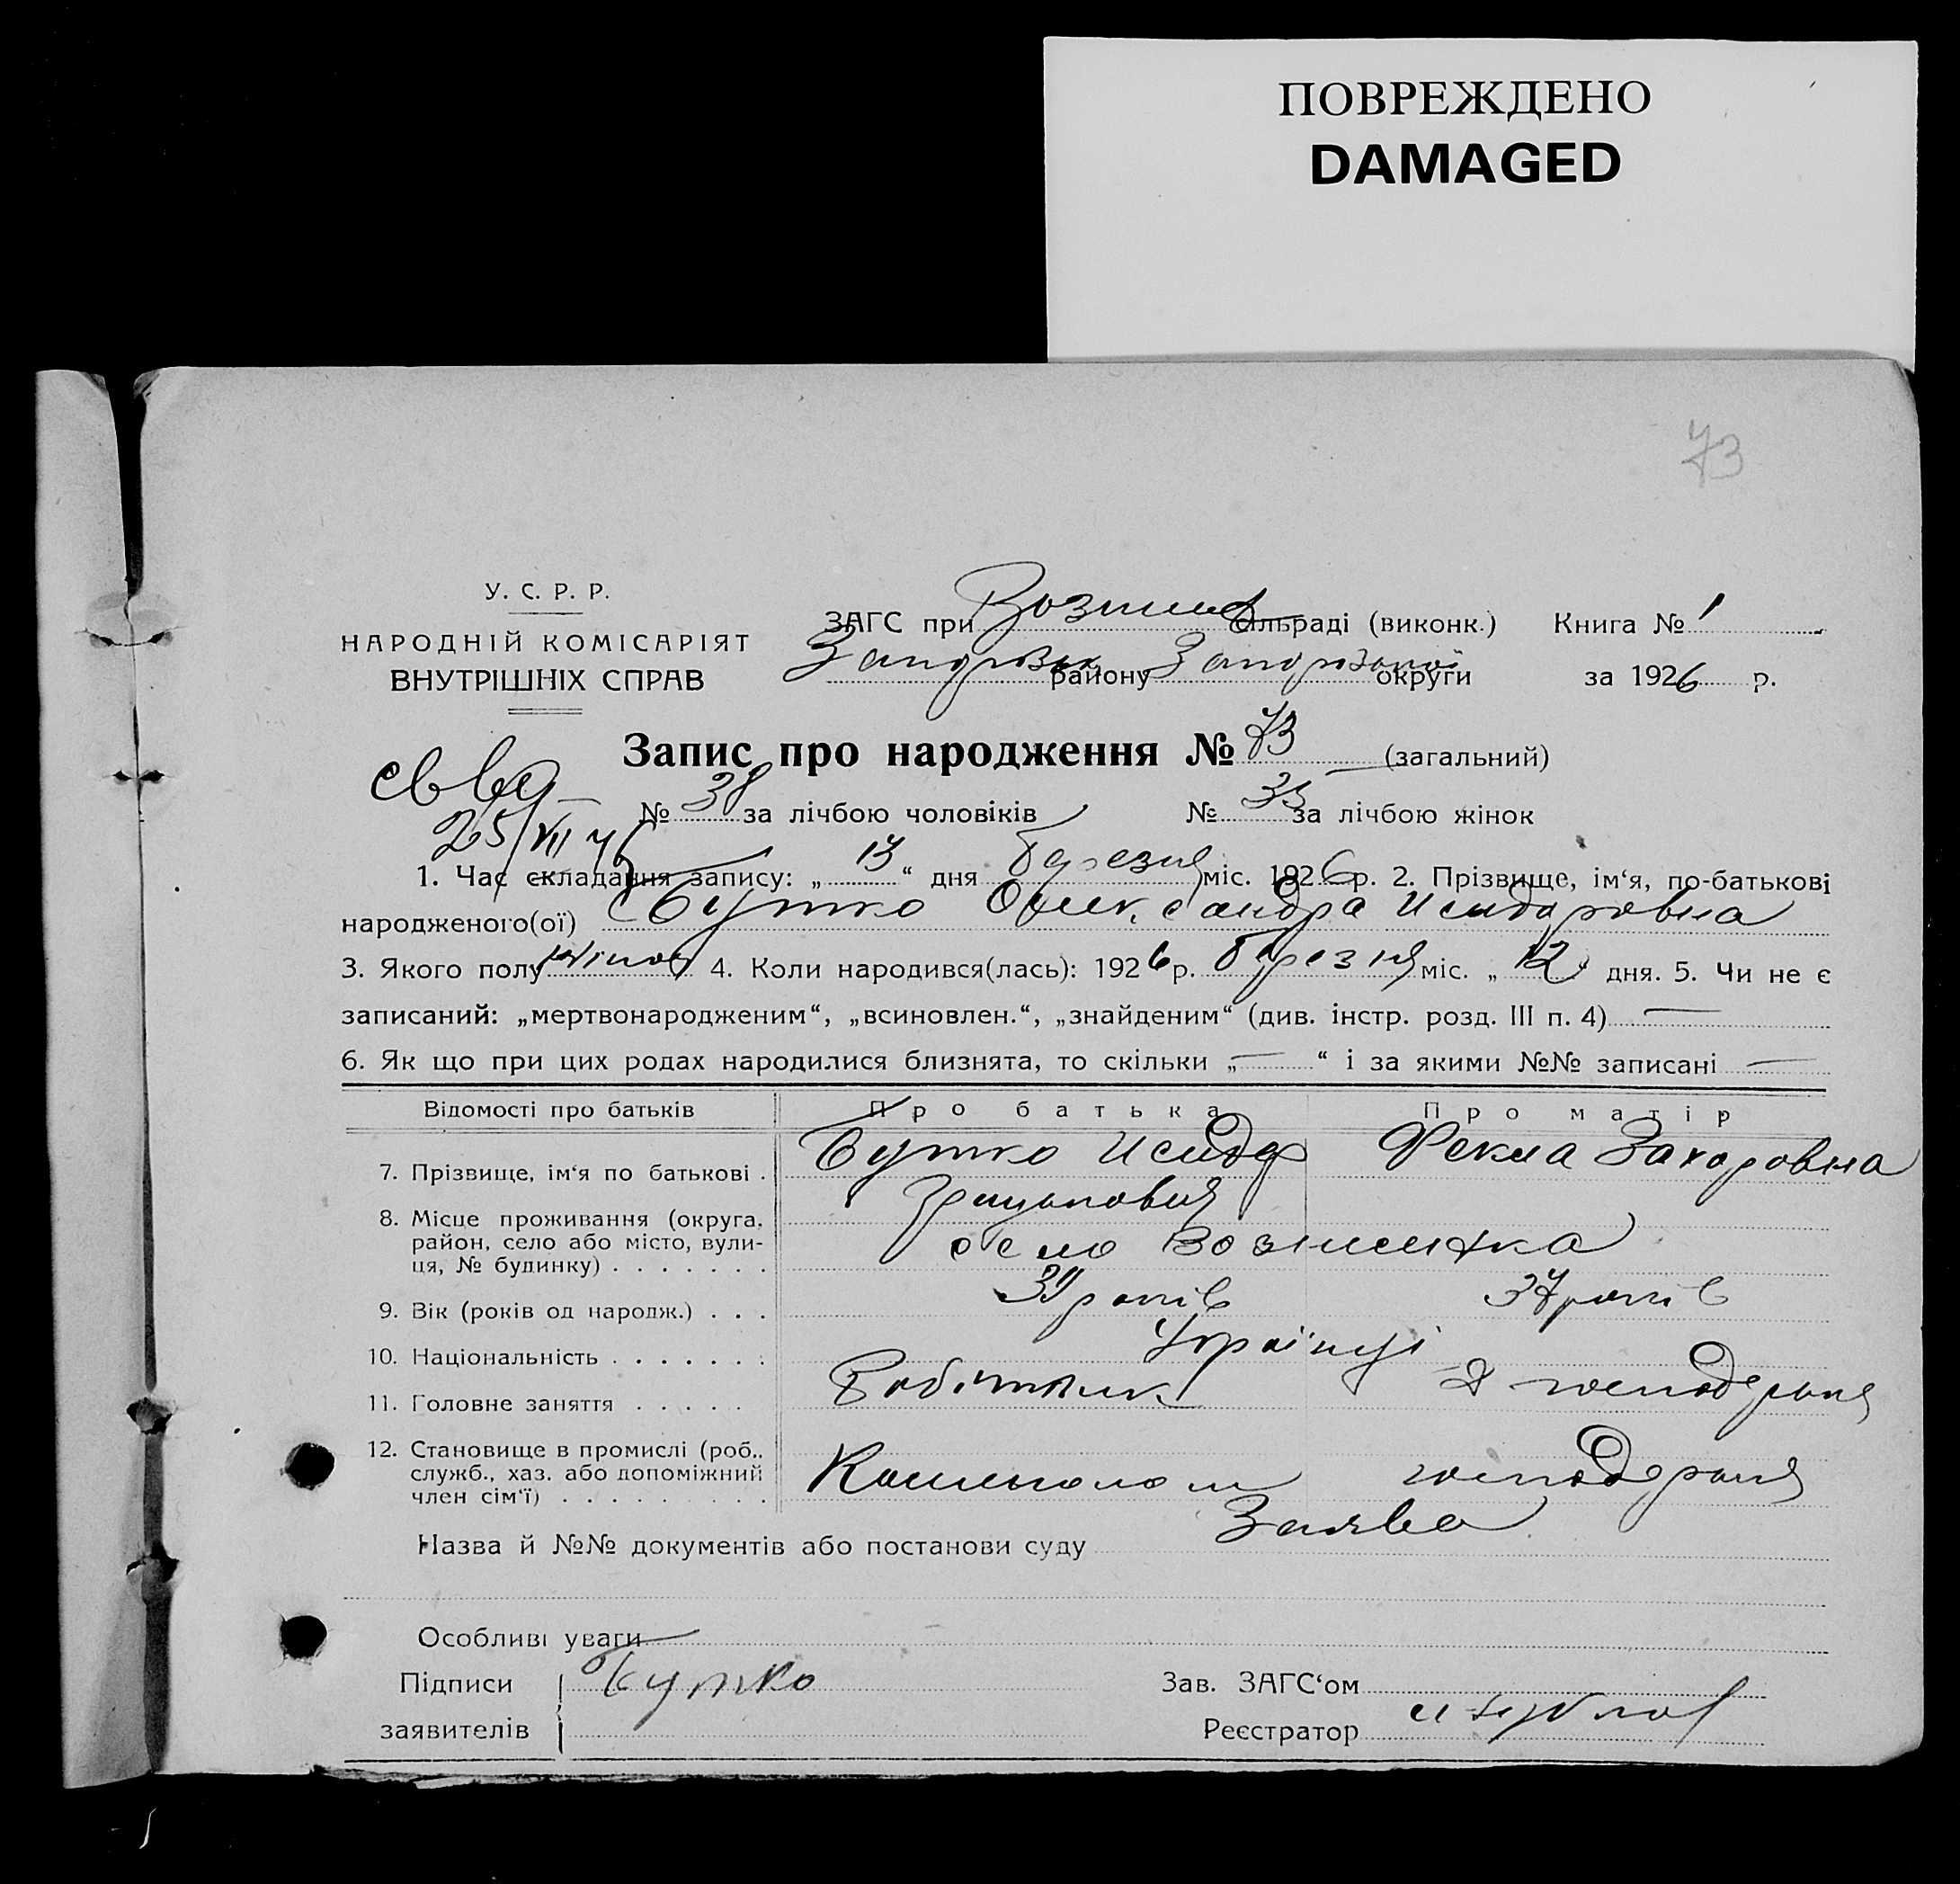 ПОВРЕЖДЕНО
DAMAGED
73
У. С. Р. Р.
НАРОДНІЙ КОМІСАРІЯТ
ВНУТРІШНІХ СПРАВ
ЗАГС при сільраді (виконк.) Книга № 1
району округи за 1926 р.
Запис про народження № 73 (загальний)
св-во
25/VII 46
№ 38 за лічбою чоловіків № 35 за лічбою жінок
1. Час складання запису: „13“ дня березня міс. 1926 р. 2. Прізвище, ім‘я, по-батькові
народженого(ої) Бутко Олександра Исидоровна
3. Якого полу жіноч 4. Коли народився(лась): 1926 р. березня міс. „12“ дня. 5. Чи не є
записаний: „мертвонародженим“, „всиновлен.“, „знайденим“ (див. інстр. розд. III п. 4) —
6. Як що при цих родах народилися близнята, то скільки „—“ і за якими №№ записані —
Відомості про батьків Про батька Про матір
7. Прізвище, ім‘я по батькові . Бутко Исидор Фекла Захаровна
8. Місце проживання (округа, район, село або місто, вулиця, № будинку) . . . . . . . село Вознисенка
9. Вік (років од народж.) . . . років 37 років
10. Національність . . . . . . . Українці
11. Головне заняття . . . . . Робітник господарка
12. Становище в промислі (роб., служб., хаз. або допоміжний член сім‘ї) . . . . . . . . . господарка
Назва й №№ документів або постанови суду Заява
Особливі уваги —
Підписи Бутко Зав. ЗАГС‘ом
заявителів Реєстратор